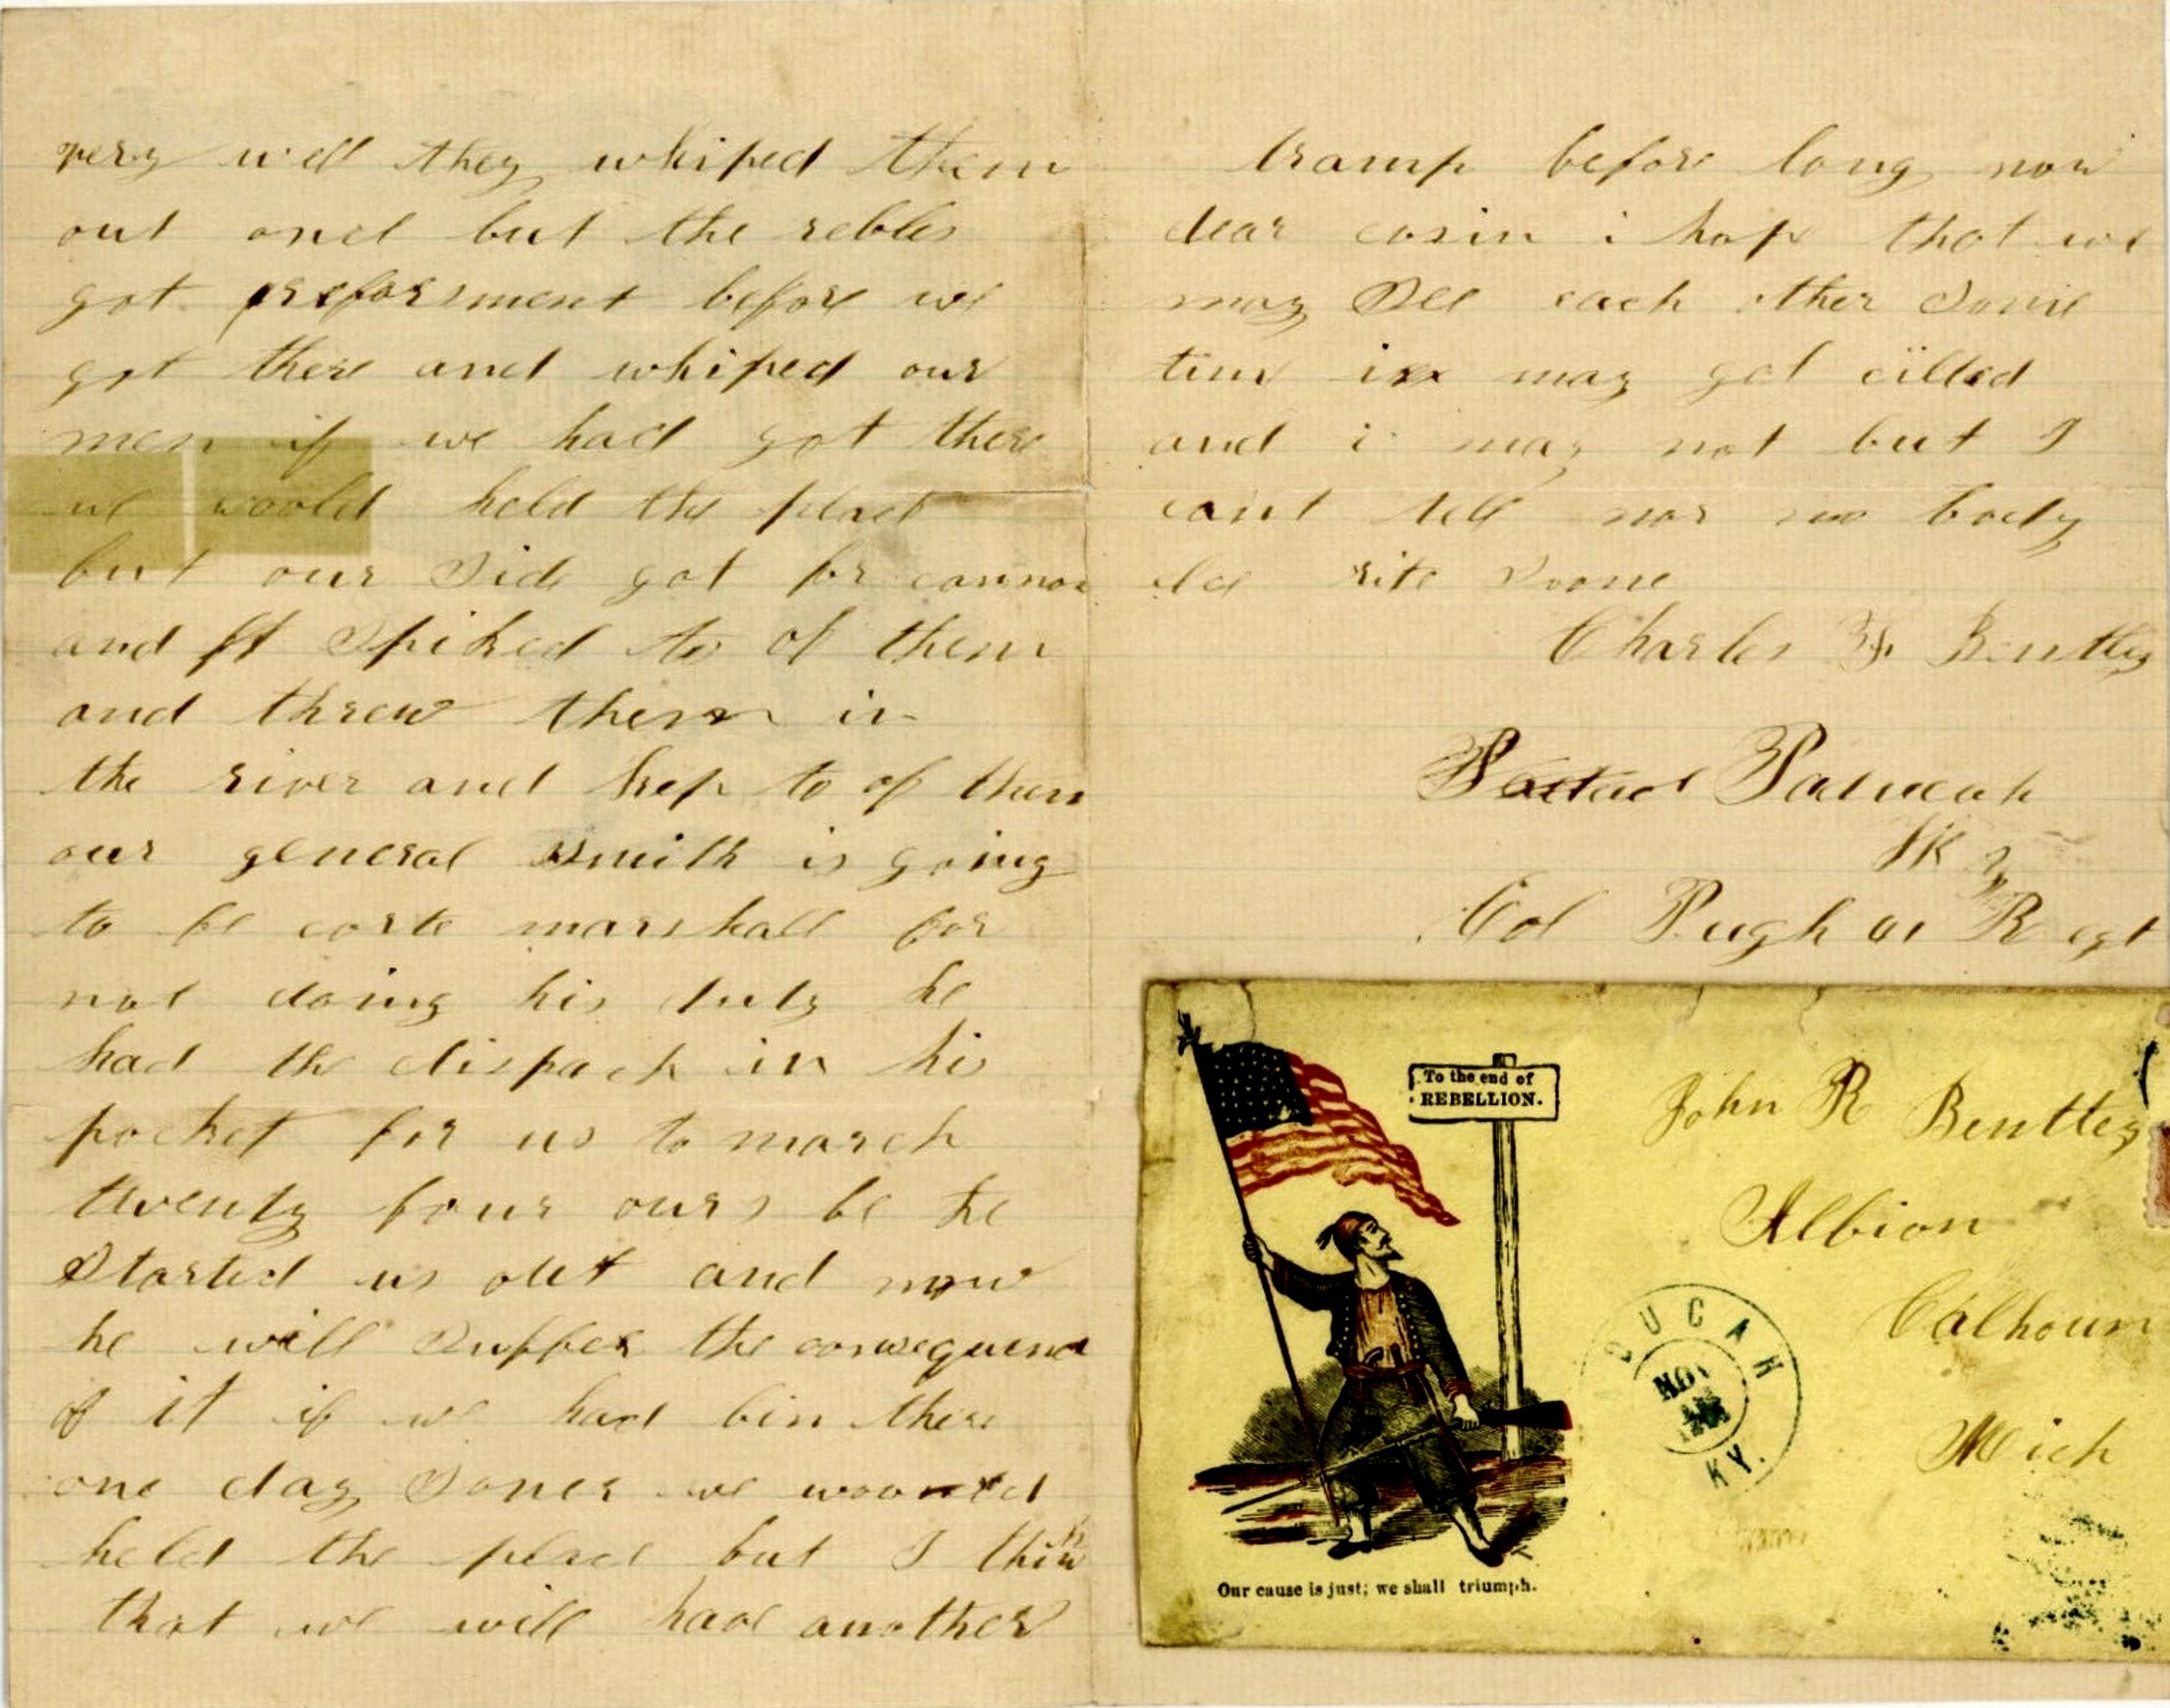 very well they whiped them
out and but the rebles
got preforsment before we
got there and whiped our
men if we had got there
we woold held the place
but our Side got for cannon
and Spiked to of them
and threw them in
the river and kep to of them
our general smith is going
to be corte marshall for
not doing his duty he
had the dispach in his
pocket for us to march
twenty four ours be he
Started us out and now
he will Suffer the consequence
of it if we had bin there
one day Soner we woould
held the place but I think
that we will have another
tramp before long now
dear cosin i hop that we
may See each other Some
time i may get cilled
and i may not but I
cant tell nor no body
els rite Soone
Charles Bentley
Paducah
Ky
Col Pugh 41 Regt
To the end of
REBELLION.
John R Bentley
Albion
Calhoun
Mich
DUCAH
NOV
KY.
Our cause is just; we shall triumph.